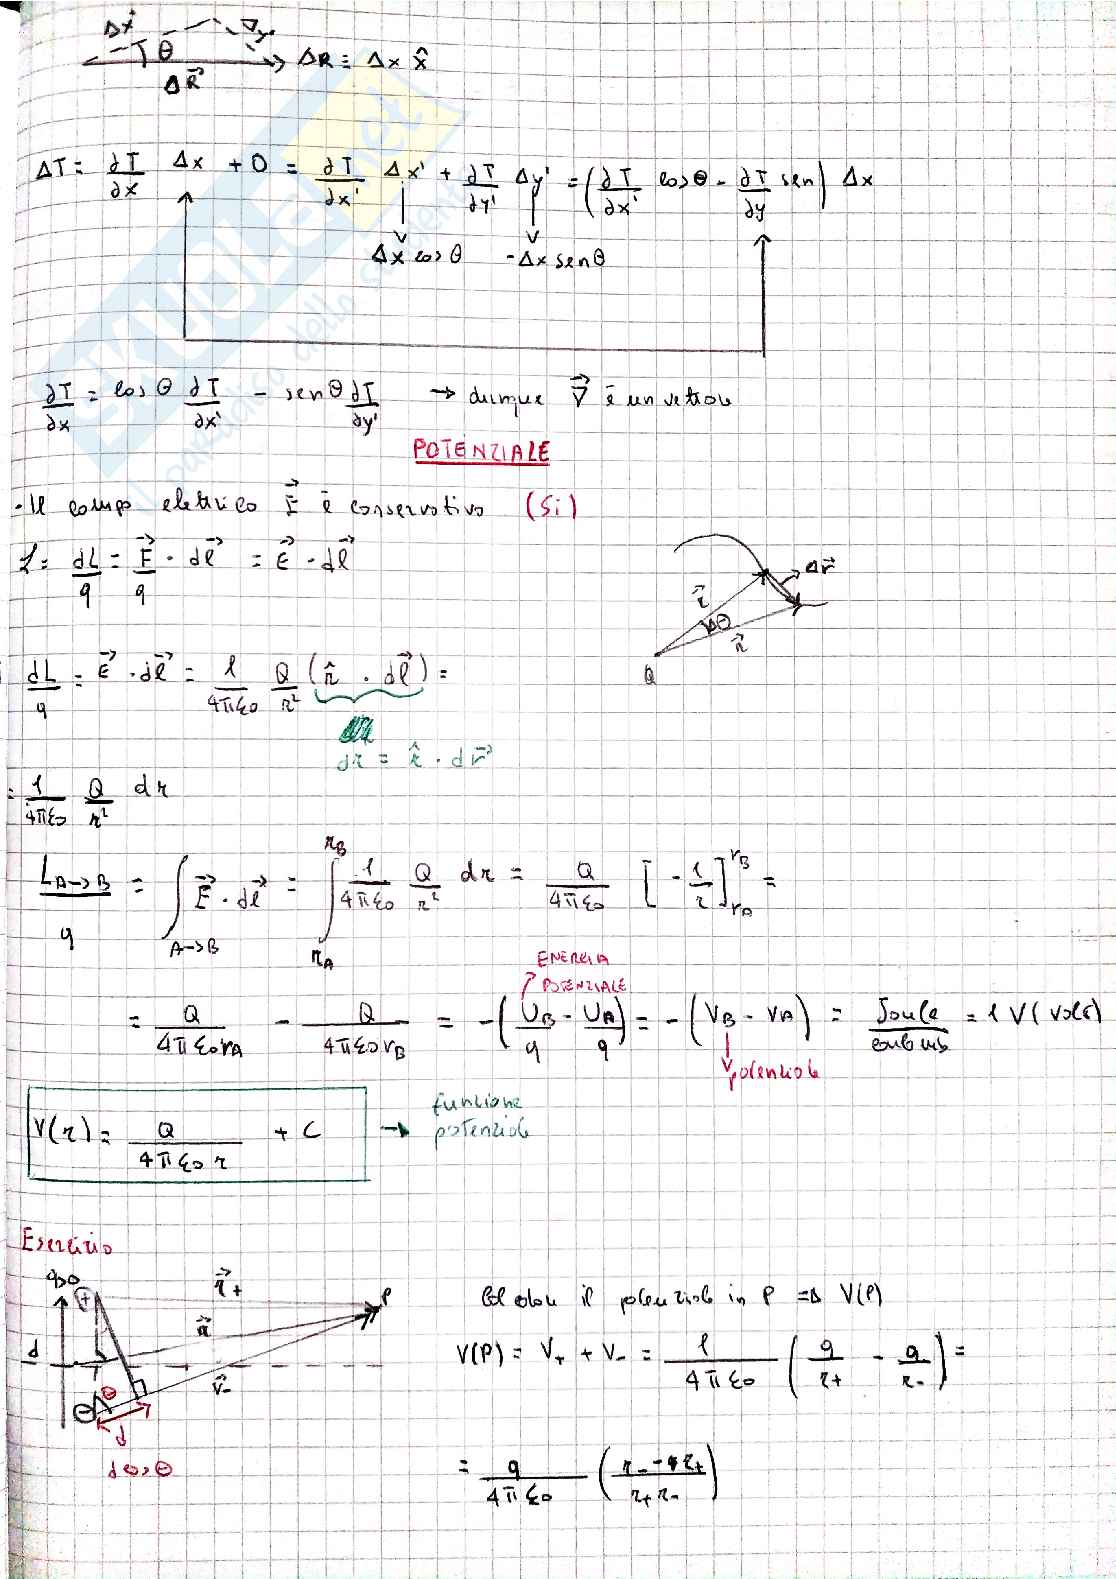 Δx' Δy'
θ
ΔR⃗ ΔR ≡ Δx x̂
ΔT = ∂T/∂x Δx + 0 = ∂T/∂x' Δx' + ∂T/∂y' Δy' = (∂T/∂x' cosθ - ∂T/∂y sen) Δx
Δx cosθ -Δx senθ
∂T/∂x = cosθ ∂T/∂x' - senθ ∂T/∂y' → dunque ∇⃗ è un vettore
POTENZIALE
- Il campo elettrico E⃗ è conservativo (Si)
L = dL/q = F⃗/q · dl⃗ = E⃗ · dl⃗
Δr⃗
r⃗ Δθ r⃗
Q
dL/q = E⃗ · dl⃗ = 1/4πε0 Q/r² (r̂ · dl⃗) =
dr = r̂ · dr⃗
= 1/4πε0 Q/r² dr
L A→B/q = ∫ A→B E⃗ · dl⃗ = ∫ rA rB 1/4πε0 Q/r² dr = Q/4πε0 [-1/r] rA rB =
ENERGIA
POTENZIALE
= Q/4πε0rA - Q/4πε0rB = -(UB/q - UA/q) = -(VB - VA) = Joule/coulomb = 1 V (volt)
potenziale
V(r) = Q/4πε0 r + C → funzione potenziale
Esercizio
q>0
+ r⃗+ P
d r⃗
r⃗-
θ
-
d cosθ
Calcolare il potenziale in P ⇒ V(P)
V(P) = V+ + V- = 1/4πε0 (q/r+ - q/r-) =
= q/4πε0 (r- - r+/r+ r-)